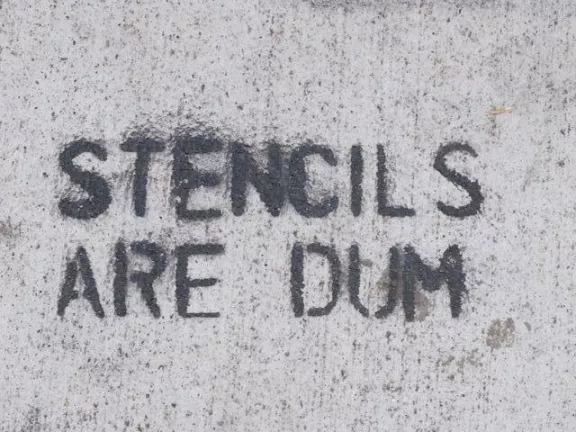 STENCILS
ARE DUM